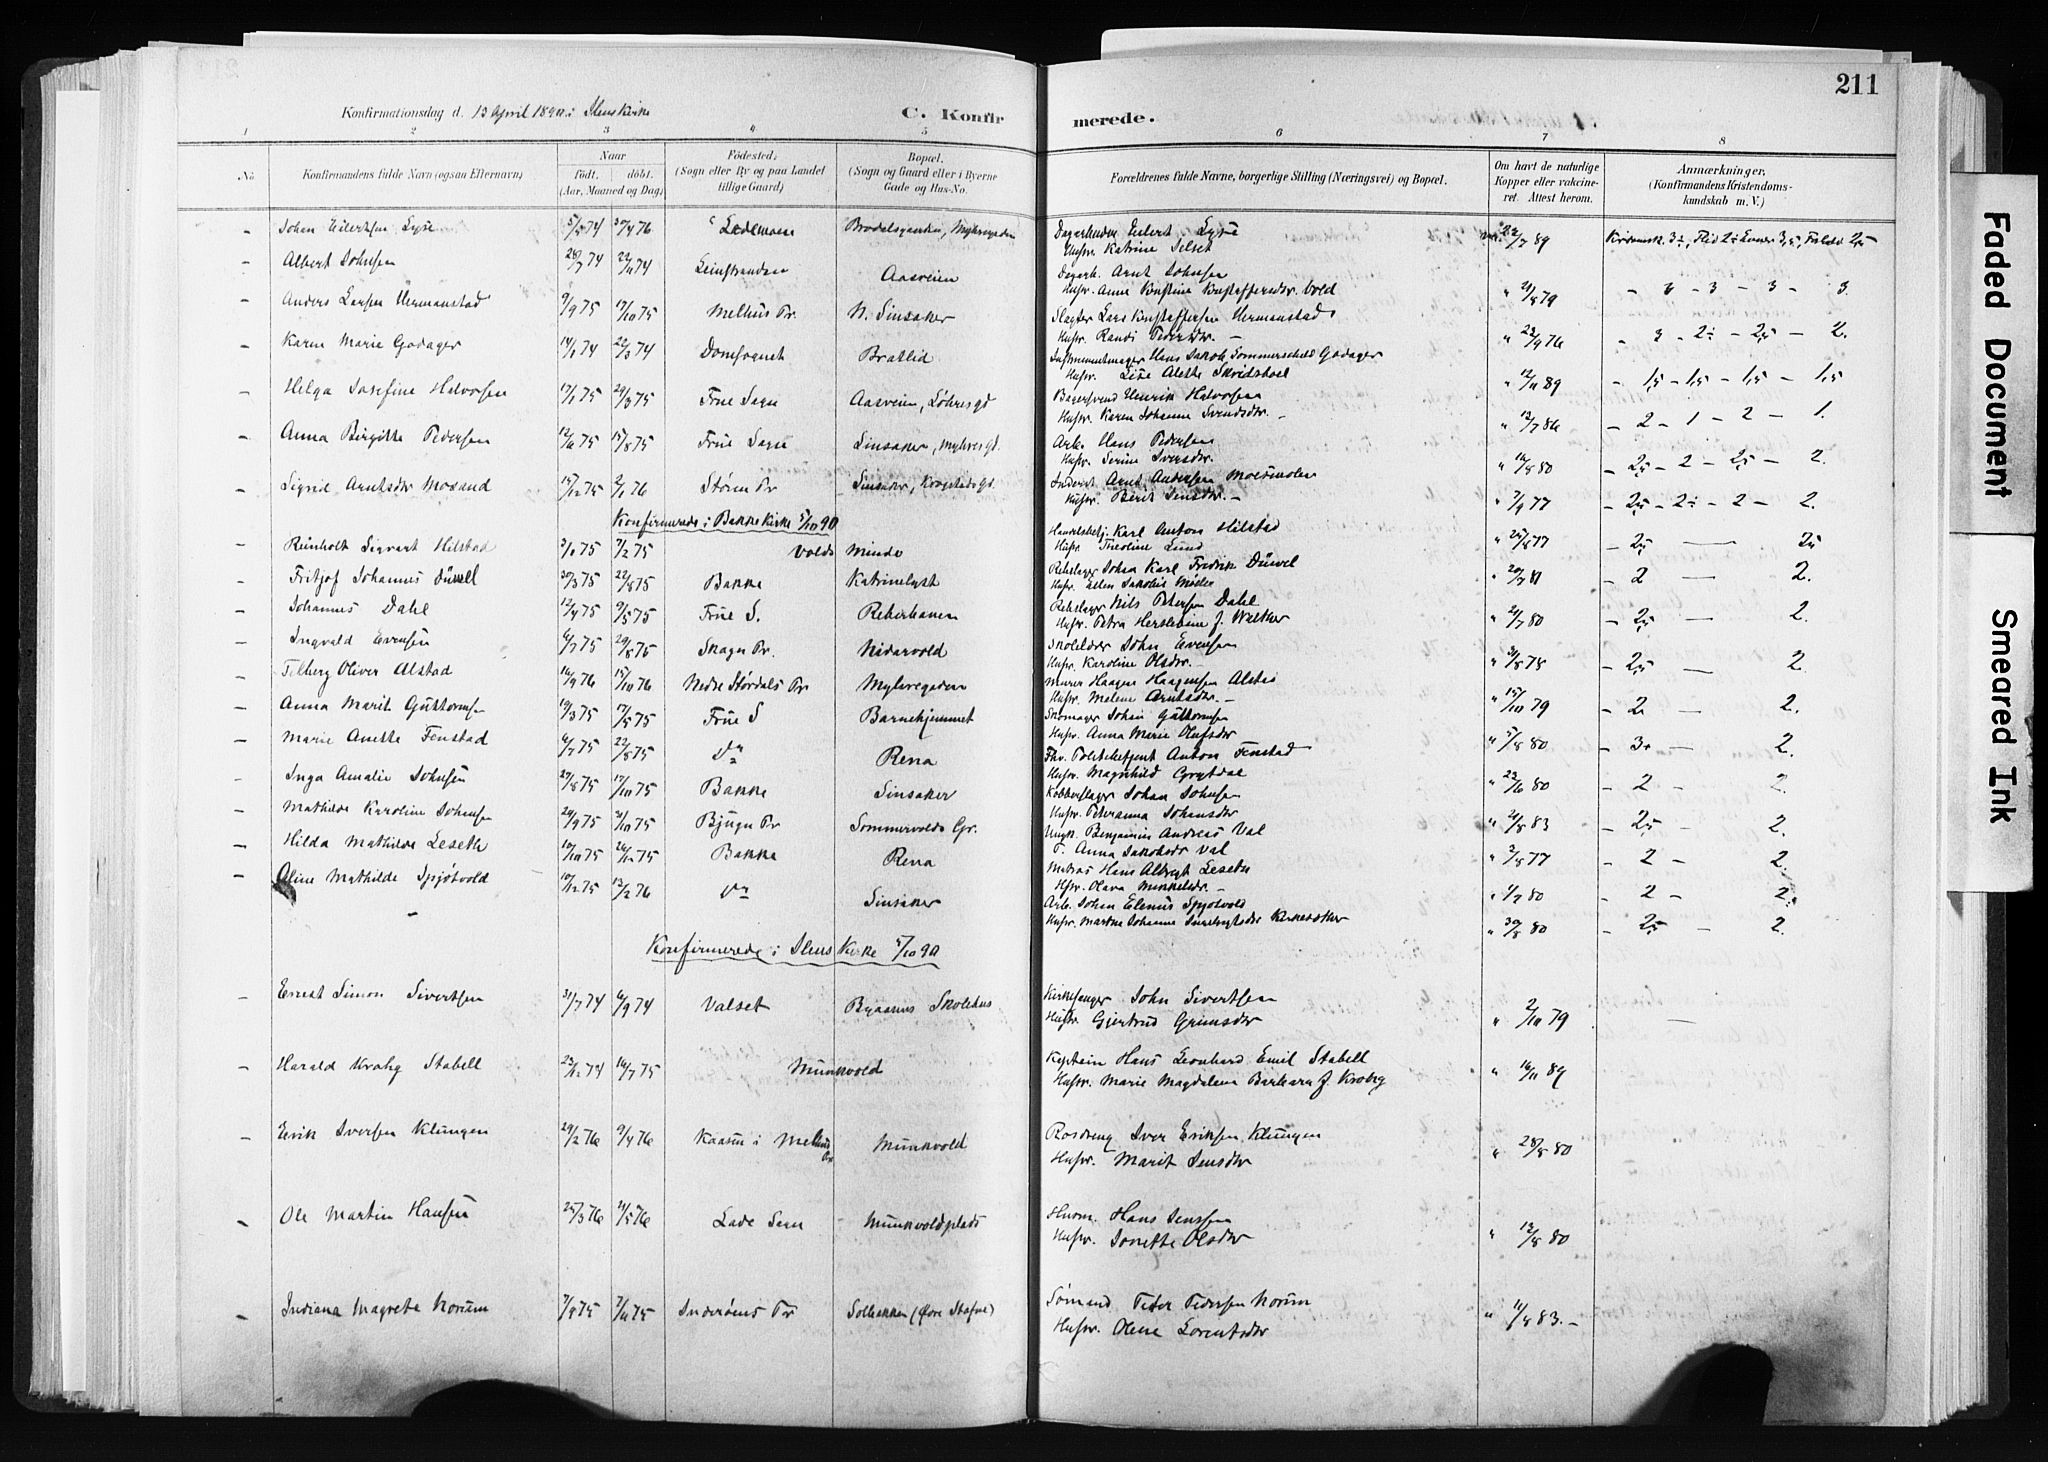 211
Konfirmationsdag d. 13 April 1890 i Ilens Kirke
C. Konfir merede.
1 2 3 4 5 6 7 8
No
Konfirmandens fulde Navn (ogsaa Efternavn)
Naar
født. døbt.
(Aar, Maaned og Dag)
Fødested,
(Sogn eller By og paa Landet
tillige Gaard)
Bopæl.
(Sogn og Gaard eller i Byerne
Gade og Hus-No.
Forældrenes fulde Navne, borgerlige Stilling (Næringsvei) og Bopæl.
Om havt de naturlige
Kopper eller vakcine-
ret. Attest herom.
Anmærkninger,
(Konfirmandens Kristendoms-
kundskab m. V.)
- Johan Eilertsen Lyse 5/5 74 30/4 76 Lademoen
Eilert Lyse
Husfr. Katrine Selset 22/7 89
- Albert Johnsen 28/7 74 22/11 74 Leinstranden Aasveien
Dagarb. Arnt Johnsen
Husfr. Anne 21/8 79 - 3 - 3 - 3 - 3.
- Anders Larsen Hermanstad 9/9 75 17/10 75 Melhus Pr. N. Sinsaker
Slagter Lars Hermanstad
Husfr. Randi Pedersdtr. - " 23/9 76
- Karen Marie Godager 14/1 74 22/3 74 Domsognet Bratlid
Instrumentmager Hans Jakob Sommerschild Godager
Husfr. Lise Alette " 12/11 89 - 1,5 - 1,5 - 1,5 - 1,5
- Helga Josefine Halvorsen 17/1 75 29/3 75 Frue Sogn Aasveien, Løhresgd
Bagersvend Henrik Halvorsen
Husfr. Karen Johanne Svendsdtr. - " 13/7 86 - 2 - 1 - 2 - 1.
- Anna Birgitte Pedersen 12/6 75 15/8 75 Frue Sogn Sinsaker, Myhresgd.
Arb. Hans Pedersen
Husfr. Serine Iversdtr. " 16/8 80 - 2,5 - 2 - 2,5 - 2.
- Sigrid Arntsdtr Mosand 15/12 75 2/1 76 Støren Pr Sinsaker,
Arnt Andersen
Husfr. Berit Jensdtr. - " 7/9 77 - 2,5 - 2 - 2 - 2.
Konfirmerede i Bakke Kirke 5/10 90
- Reinholt Sigvart Hilstad 3/1 75 7/2 75 Volds Minde
Handelsbetj. Karl Anton Hilstad
Husfr. Theoline Lund " 25/8 77 - 2,5 — 2,5
- Fritjof Johannes Düvel 30/3 75 22/8 75 Bakke Katrinelyst
Rebslager Johan Karl Fredrik Düvel
Husfr. Ellen Jakobie Møller " 20/7 81 - 2 — 2.
- Johannes Dahl 12/4 75 9/5 75 Frue S. Reberbanen
Rebslager Nils Petersen Dahl
Husfr. Petra f. Walther " 21/7 80 - 2,5 — 2.
- Ingvald Evensen 6/7 75 29/8 75 Skogn Pr. Nidarvold
Skolelærer John Evensen
Husfr. Karoline Olsdtr. - " 31/8 75 - 2,5 — 2.
- Oliver Alstad 16/9 76 15/10 76 Nedre Størdals Pr Myhregaden
Murer Haagen Haagensen Alstad
Husfr. Malene Arntsdtr. - " 15/10 79 - 2 — 2.
- Anna Marit Guttormsen 19/3 75 17/5 75 Frue S Barnehjemmet
Skomager Johan Guttormsen
Husfr. Anna Marie Olufsdtr " 5/8 80 - 3+ — 2.
- Marie Anette Fenstad 6/7 75 22/8 75 do Rena
Fhv. Politibetjent Anton Fenstad
Husfr. Magnhild Grytdal " 23/6 80 - 2 - 2.
- Inga Amalie Johnsen 27/8 75 17/10 75 Bakke Sinsaker
Kobberslager Johan Johnsen
Husfr. Peteranna Johansdtr " 21/8 83 - 2,5 - 2.
- Mathilde Karoline Johansen 29/9 75 31/10 75 Bjugn Pr Sommervolds Gr.
Ungk. Benjamin Andreas Val
P. Anna Jakobsdr Val " 3/8 77 - 2 - 2.
- Hilda Mathilde Leseth 10/10 75 26/12 75 Bakke Rena
Matros Hans Albregt Leseth
Hfr. Olava Mikkelsdr. - " 1/9 80 - 2 - 2.
- Oline Mathilde Spjøtvold 10/12 75 13/2 76 do Sinsaker
Arb. Johan Elenus Spjøtvold
Husfr. Marthe Johanne " 30/8 80 - 2,5 - 2.
Konfirmerede i Ilens Kirke 5/10 90
- Ernest Simon Sivertsen 31/7 74 6/9 74 Valset Byaasens Skolehus
Kirkesanger John Sivertsen
Husfr. Gjertrud Grimsdtr " 2/10 79 —
- Harald Krohg Stabell 23/12 74 16/7 75 Munkvold
Kaptein Hans Leonhard Emil Stabell
Husfr. Marie Magdalena Barbara f. Krohg " 16/11 89
- Erik Iversen Klungen 29/2 76 9/4 76 Kaasen i Melhus Pr Munkvold
Iver Eriksen Klungen
Husfr. Marit Jensdtr " 28/8 80
- Ole Martin Hansen 25/3 76 21/5 76 Lade Sogn Munkvoldplads
Husm. Hans Jenssen
Husfr. Jonette Olsdtr " 13/8 80
- Indiana Magrete Norum 7/9 75 7/11 75 Inderøens Pr Solbakken (Øvre Stafne)
Sømand Peter Pedersen Norum
Husfr. Oline Lorentsdtr " 11/8 83. -
Faded Document
Smeared Ink